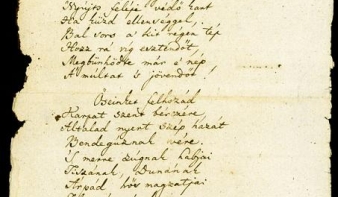 Nyújts feléje védő kart
Ha küzd ellenséggel,
Bal sors a' kit régen tép
Hozz rá víg esztendőt,
Megbűnhődte már e' nép
A' multat 's jövendőt!
Őseinket felhozád
Kárpát szent bérczére,
Általad nyert szép hazát
Bendegúznak vére.
'S merre zúgnak habjai
Tiszának, Dunának
Árpád hős magzatjai